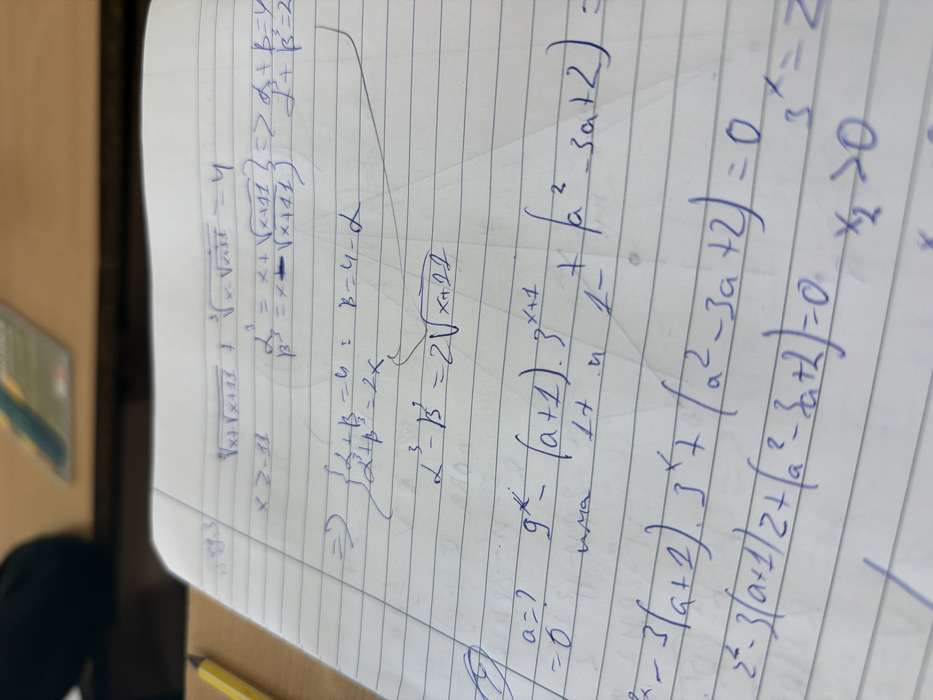 ∛(x+√(x+11)) + ∛(x-√(x+11)) = 4
x ≥ -11
α³ = x+√(x+11)
β³ = x-√(x+11) } => α+β=4
α³+β³=2
=> { α+β=4 : β=4-α
α³+β³=2x
α³-β³=2√(x+11)
a=? 9ˣ-(a+1).3ˣ⁺¹+(a²-3a+2)=
=0
има 1+ и 1-
-3(a+1).3ˣ+(a²-3a+2)=0
3ˣ=z
z²-3(a+1)z+(a²-3a+2)=0
x₂>0